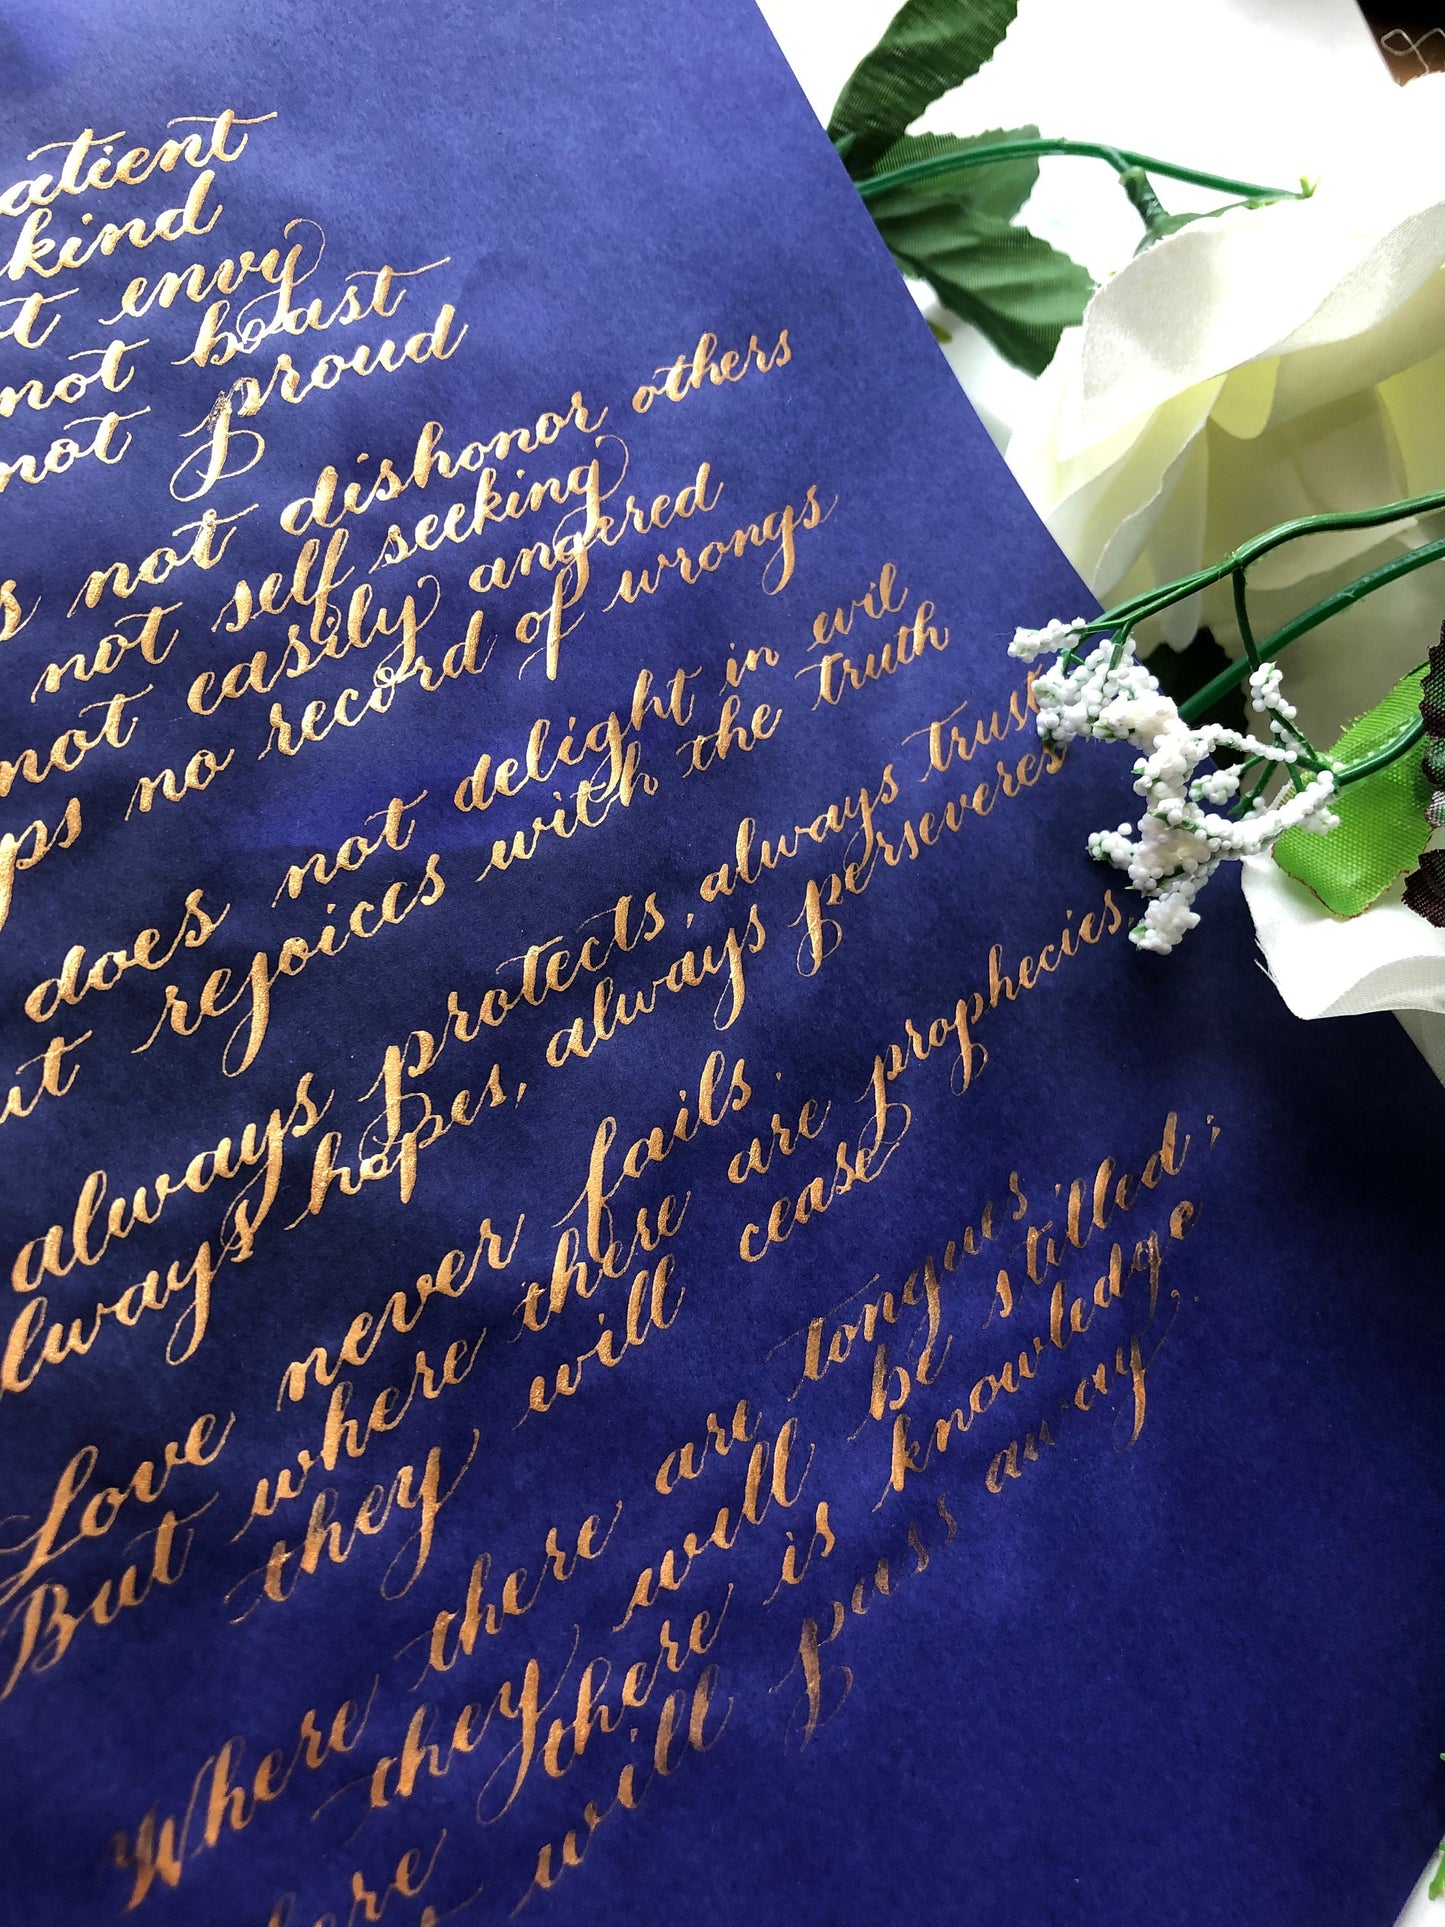 atient
kind
t envy
not boast
not proud
s not dishonor others
not self seeking
not easily angered
ps no record of wrongs
does not delight in evil
ut rejoices with the truth
always protects, always trust
lways hopes, always perseveres
Love never fails.
But where there are prophecies,
they will cease
Where there are tongues
they will be stilled;
here there is knowledge
will pass away.